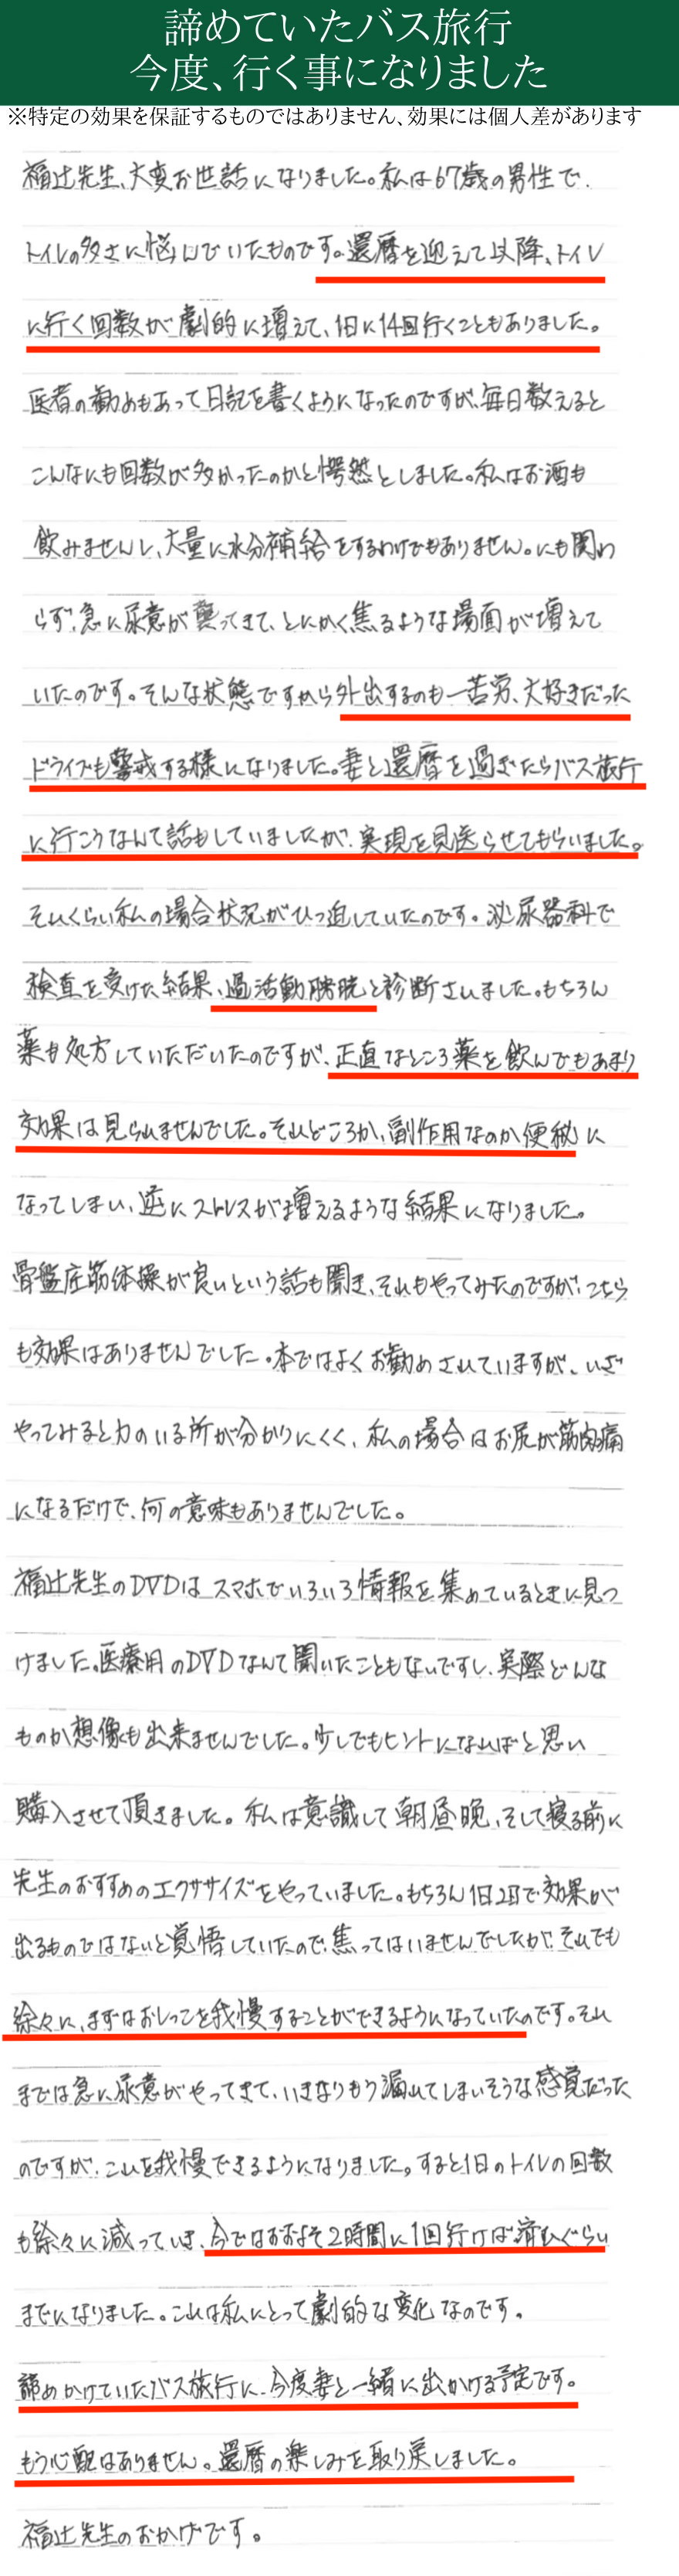 諦めていたバス旅行
今度、行く事になりました
※特定の効果を保証するものではありません、効果には個人差があります
福辻先生、大変お世話になりました。私は67歳の男性で、
トイレの多さに悩んでいたものです。還暦を迎えて以降、トイレ
に行く回数が劇的に増えて、1日に14回行くこともありました。
医者の勧めもあって日記を書くようになったのですが、毎日数えると
こんなにも回数が多かったのかと愕然としました。私はお酒も
飲みませんし、大量に水分補給をするわけでもありません。にも関わ
らず、急に尿意が襲ってきて、とにかく焦るような場面が増えて
いたのです。そんな状態ですから外出するのも一苦労、大好きだった
ドライブも警戒する様になりました。妻と還暦を過ぎたらバス旅行
に行こうなんて話もしていましたが、実現を見送らせてもらいました。
それくらい私の場合状況がひっ迫していたのです。泌尿器科で
検査を受けた結果、過活動膀胱と診断されました。もちろん
薬も処方していただいたのですが、正直なところ薬を飲んでもあまり
効果は見られませんでした。それどころか、副作用なのか便秘に
なってしまい、逆にストレスが増えるような結果になりました。
骨盤底筋体操が良いという話も聞き、それもやってみたのですが、こちら
も効果はありませんでした。本ではよくお勧めされていますが、いざ
やってみると力のいる所が分かりにくく、私の場合はお尻が筋肉痛
になるだけで、何の意味もありませんでした。
福辻先生のDVDはスマホでいろいろ情報を集めているときに見つ
けました。医療用のDVDなんて聞いたこともないですし、実際どんな
ものか想像も出来ませんでした。少しでもヒントになればと思い
購入させて頂きました。私は意識して朝昼晩、そして寝る前に
先生のおすすめのエクササイズをやっていました。もちろん1日2日で効果が
出るものではないと覚悟していたので、焦ってはいませんでしたが、それでも
徐々に、まずはおしっこを我慢することができるようになっていたのです。それ
までは急に尿意がやってきて、いきなりもう漏れてしまいそうな感覚だった
のですが、これを我慢できるようになりました。すると1日のトイレの回数
も徐々に減っていき、今ではおおよそ2時間に1回行けば済むぐらい
までになりました。これは私にとって劇的な変化なのです。
諦めかけていたバス旅行に、今度妻と一緒に出かける予定です。
もう心配はありません。還暦の楽しみを取り戻しました。
福辻先生のおかげです。